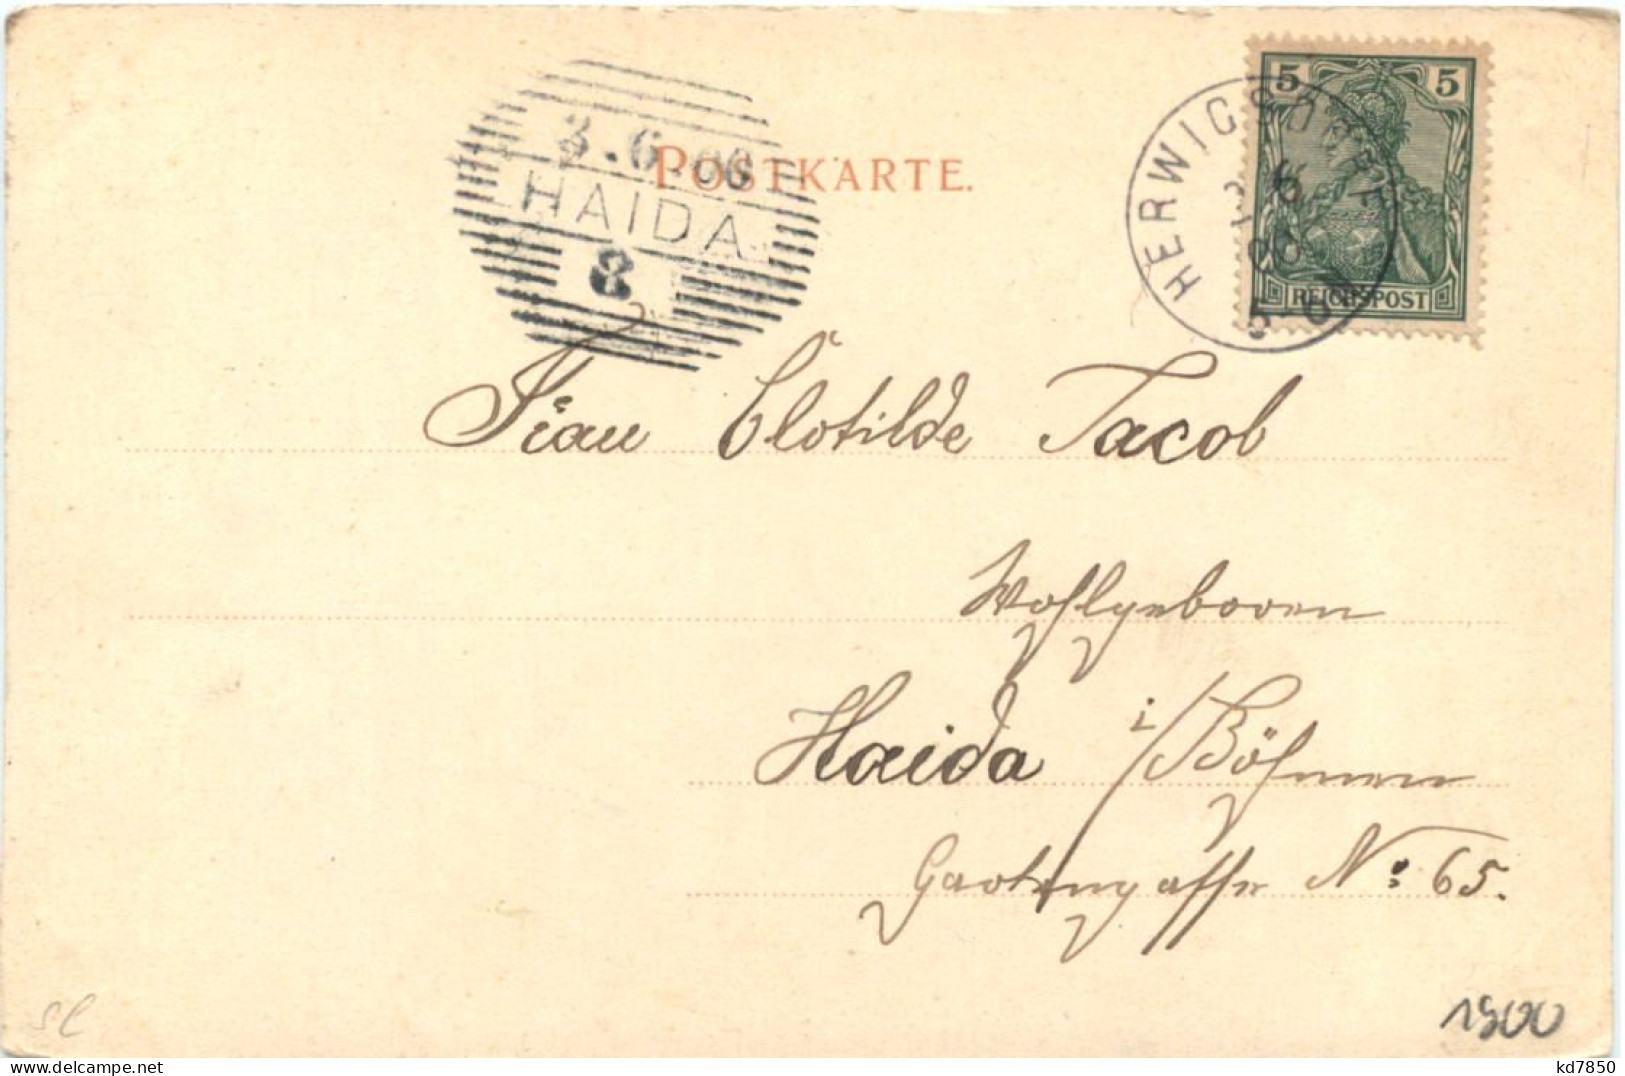 5 5
REICHSPOST
HERWIGSDORF
6
00
3.6.00
HAIDA
8
POSTKARTE.
Frau Clotilde Jacob
Wohlgeboren
Haida i/Böhmen
Gartengasse No 65.
1900
kd7850